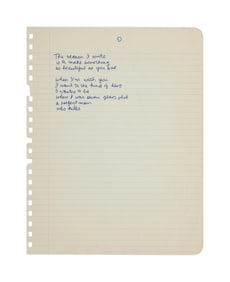 The reason I write
is to make something
as beautiful as you are
When I'm with you
I want to be the kind of hero
I wanted to be
when I was seven years old
a perfect man
who kills